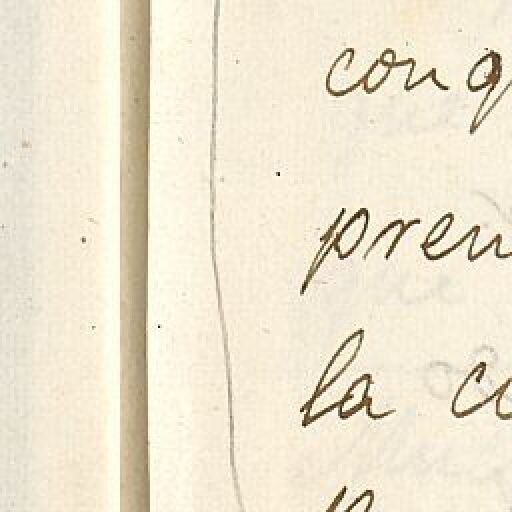 conq
pren
la co